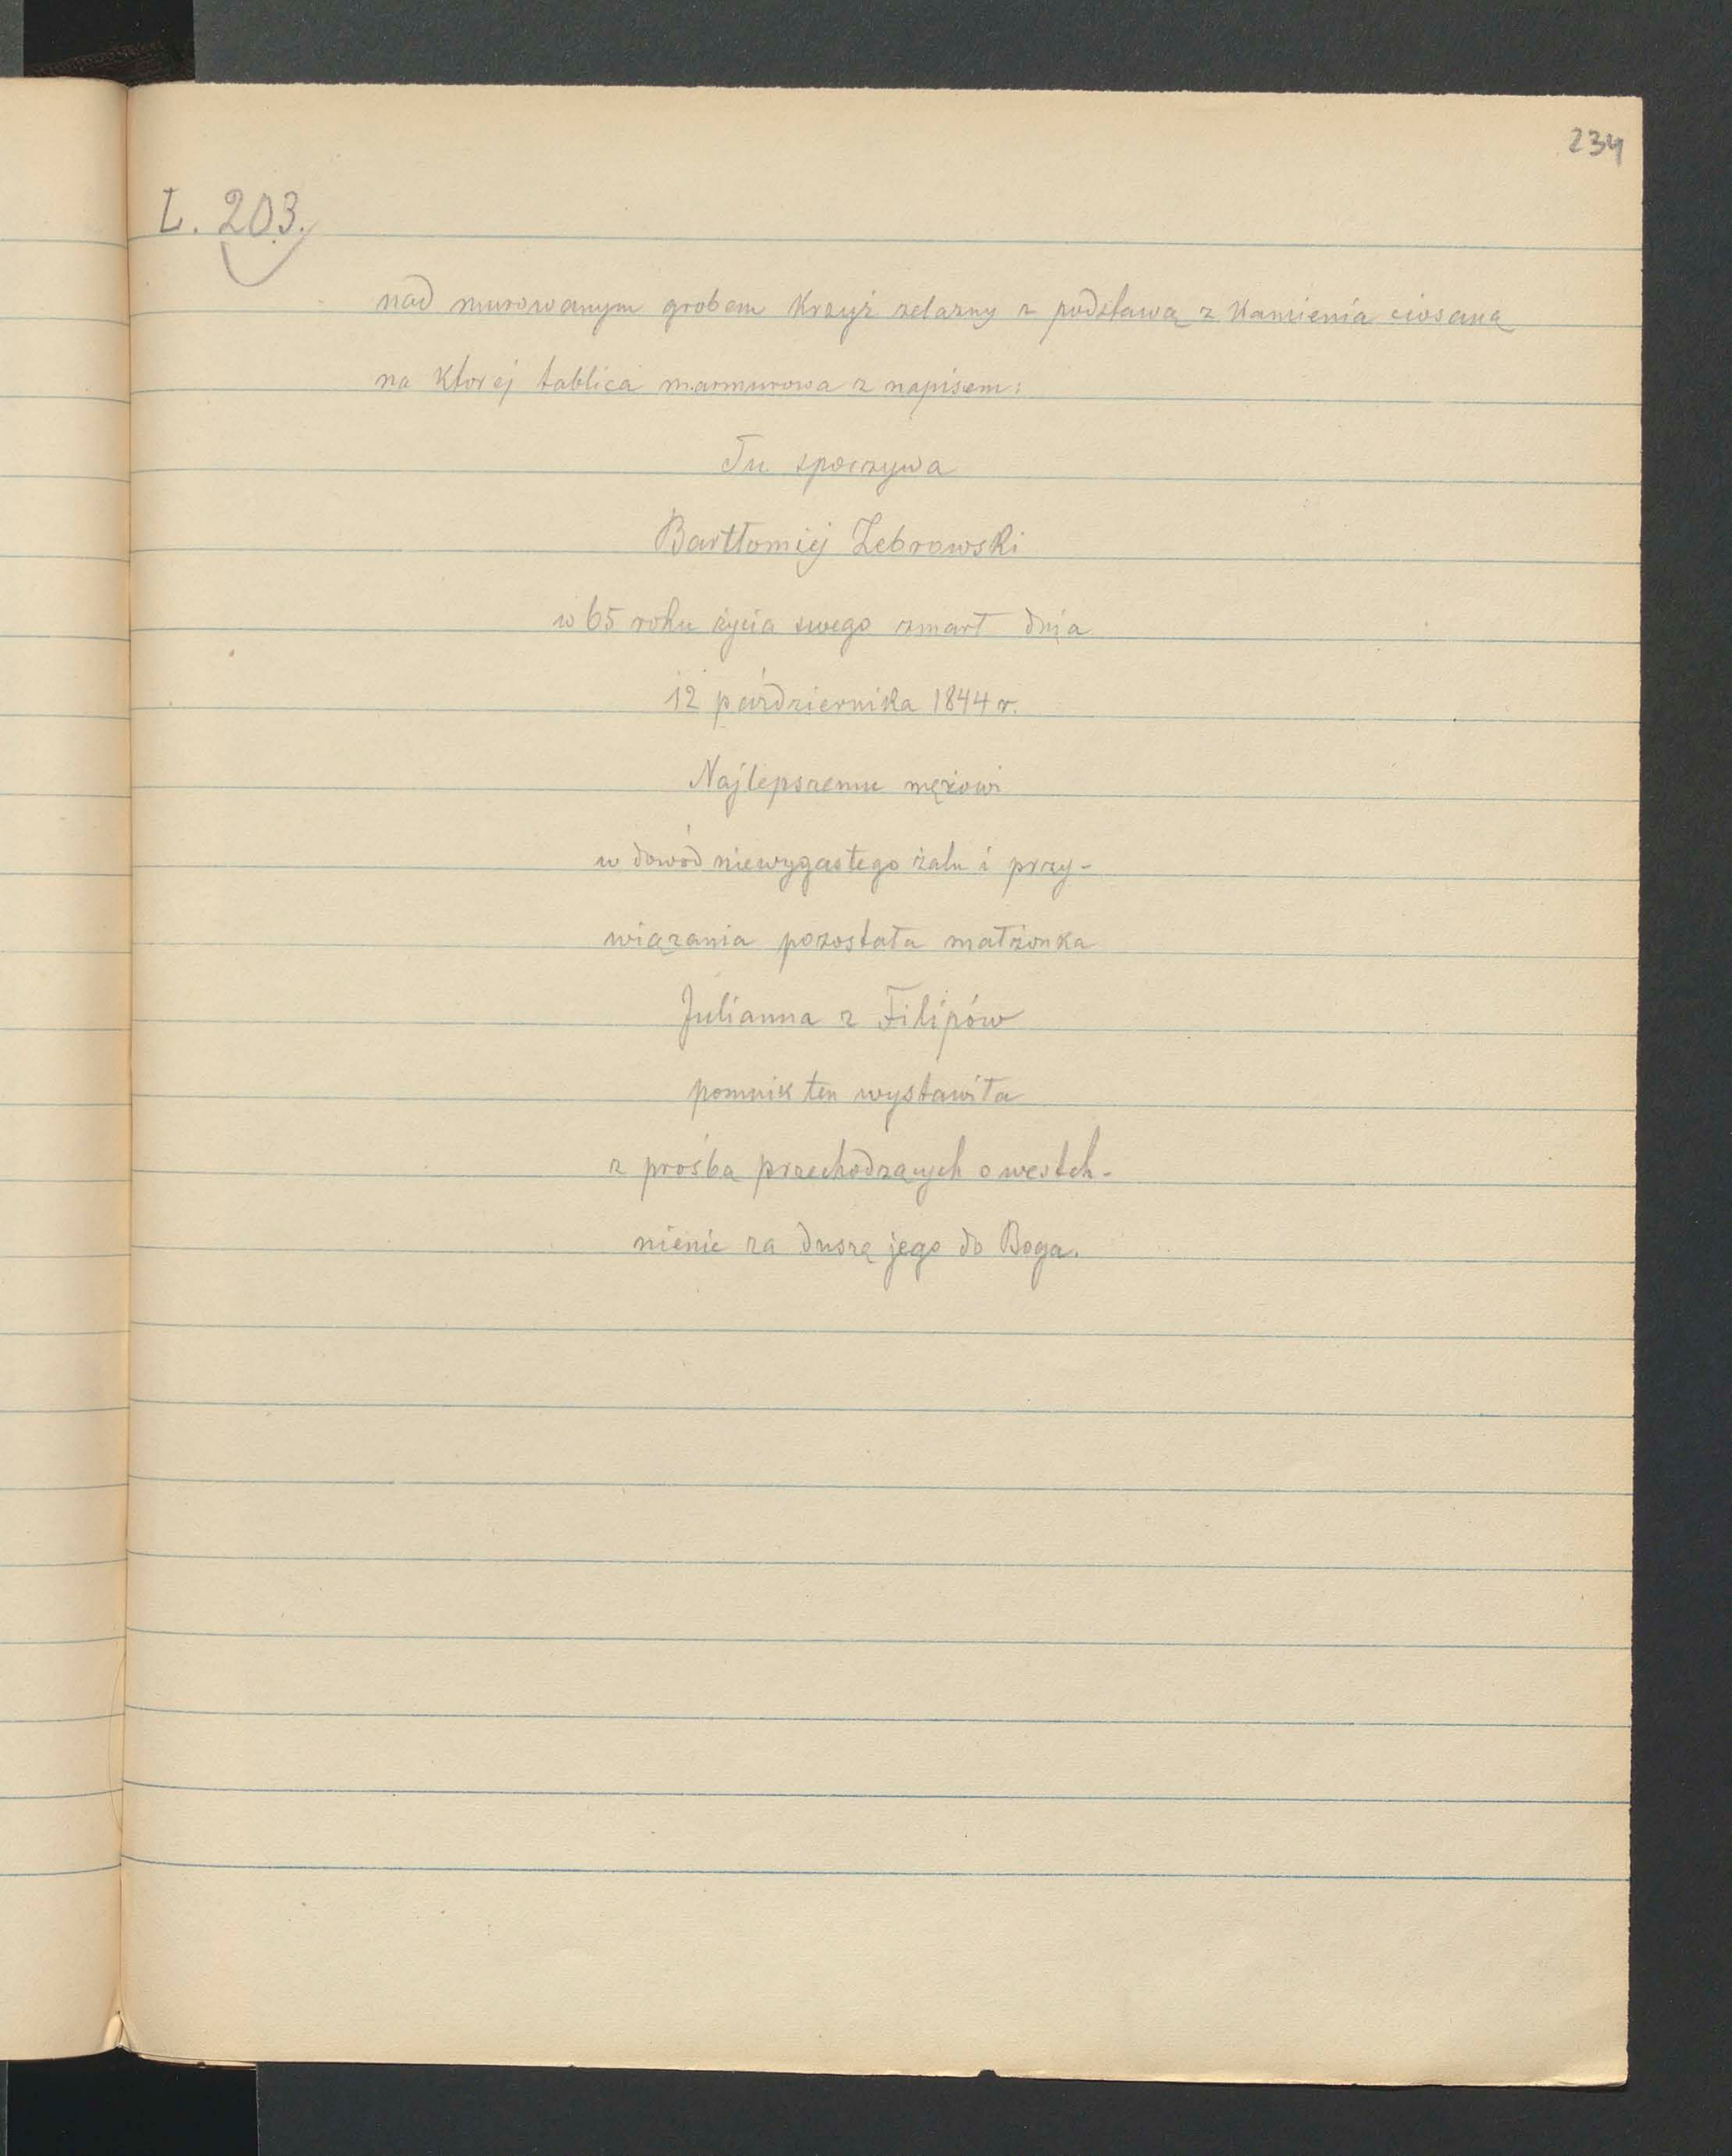 234
L. 203.
nad murowanym grobem Krzyż zelazny z podstawą z Kamienia ciosaną
na Ktorej tablica marmurowa z napisem:
Tu spoczywa
Bartłomiej Zebrowski
w 65 roku życia swego zmarł dnia
12 października 1844 r.
Najlepszemu mężowi
w dowód niewygasłego żalu i przy-
wiązania pozostała małżonka
Julianna z Filipów
pomnik ten wystawiła
z prośbą przechodzących o westch-
nienie za duszę jego do Boga.